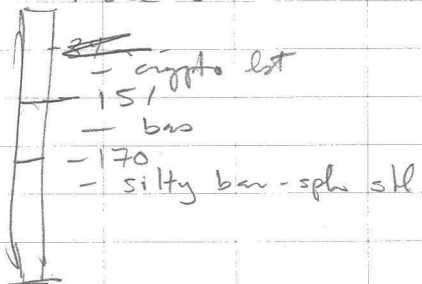 - crypto lst
- 151
- bas
- 170
- silty bar - sph stl